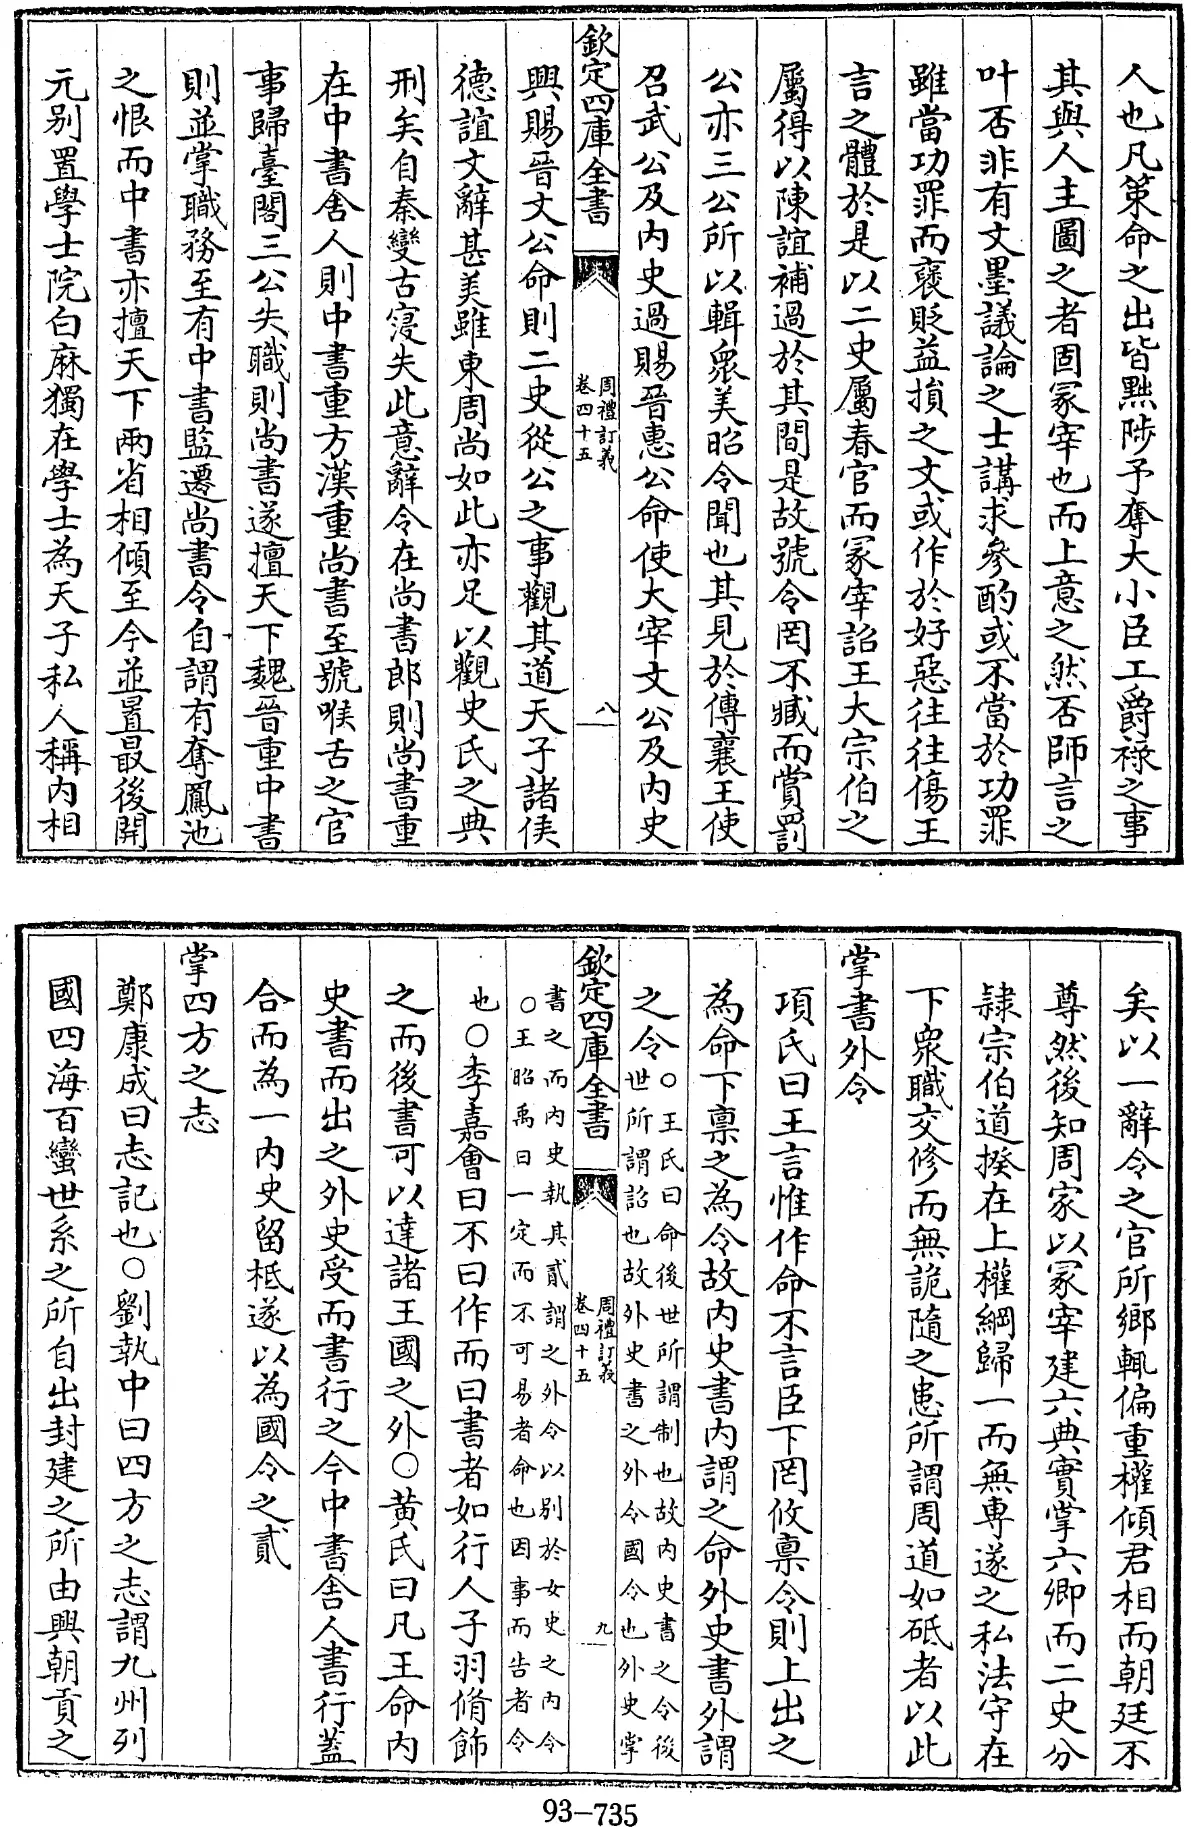 人也凡策命之出皆黜陟予奪大小臣工爵祿之事
其與人主圖之者固冢宰也而上意之然否師言之
叶否非有文墨議論之士講求參酌或不當於功罪
雖當功罪而襃貶益損之文或作於好惡往往傷王
言之體於是以二史屬春官而冢宰詔王大宗伯之
屬得以陳誼補過於其間是故號令罔不臧而賞罰
公亦三公所以輯衆美昭令聞也其見於傳襄王使
召武公及内史過賜晉惠公命使大宰文公及内史
欽定四庫全書
周禮訂義
卷四十五
八
興賜晉文公命則二史從公之事觀其道天子諸侯
德誼文辭甚美雖東周尚如此亦足以觀史氏之典
刑矣自秦變古寖失此意辭令在尚書郎則尚書重
在中書舍人則中書重方漢重尚書至號喉舌之官
事歸臺閣三公失職則尚書遂擅天下魏晉重中書
則並掌職務至有中書監遷尚書令自謂有奪鳳池
之恨而中書亦擅天下兩省相傾至今並置最後開
元别置學士院白麻獨在學士為天子私人稱内相
矣以一辭令之官所鄉輒偏重權傾君相而朝廷不
尊然後知周家以冢宰建六典實掌六卿而二史分
隸宗伯道揆在上權綱歸一而無專遂之私法守在
下衆職交修而無詭隨之患所謂周道如砥者以此
掌書外令
項氏曰王言惟作命不言臣下罔攸禀令則上出之
為命下禀之為令故内史書内謂之命外史書外謂
之令○王氏曰命後世所謂制也故内史書之令後
世所謂詔也故外史書之外令國令也外史掌
欽定四庫全書
周禮訂義
卷四十五
九
書之而内史執其貳謂之外令以别於女史之内令
○王昭禹曰一定而不可易者命也因事而告者令
也○李嘉會曰不曰作而曰書者如行人子羽脩飾
之而後書可以達諸王國之外○黄氏曰凡王命内
史書而出之外史受而書行之今中書舍人書行蓋
合而為一内史留柢遂以為國令之貳
掌四方之志
鄭康成曰志記也○劉執中曰四方之志謂九州列
國四海百蠻世系之所自出封建之所由興朝貢之
93-735